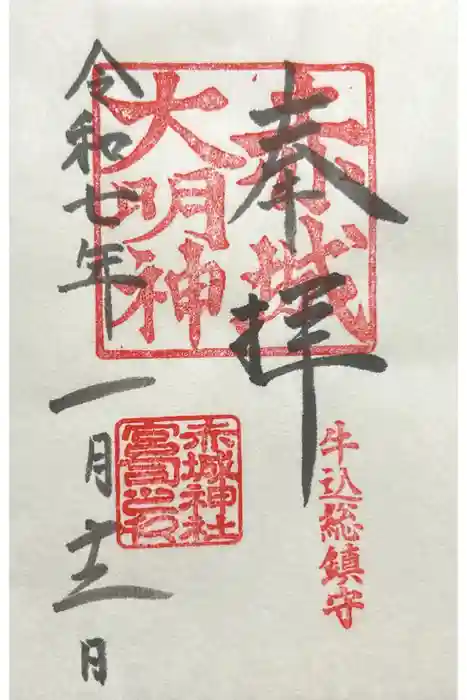 奉拝
赤城
大明神
牛込総鎮守
赤城神社
宮司之印
令和七年一月十二日